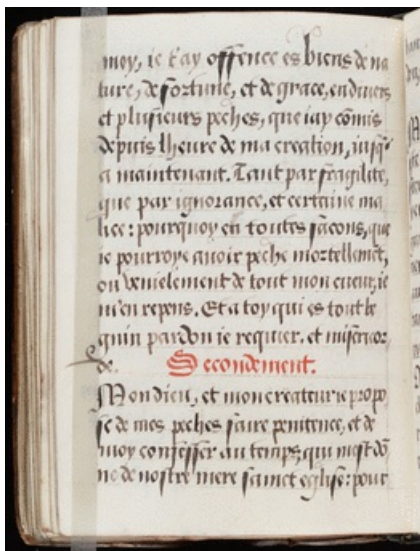 moy, ie t'ay offence es biens de na
ture, de fortune, et de grace, en divers
et plusieurs peches, que iay cõmis
depuis lheure de ma creation, iusq'
a maintenant. Tant par fragilite,
que par ignorance, et certaine ma
lice: pourquoy en toutes facons, que
ie pourroye avoir peche mortellemẽt,
ou venielement de tout mon cueur, ie
m'en repens. Et a toy qui es tout be
guin pardon ie requier, et misericor
de. Secondement.
Mon dieu, et mon createur ie propo
se de mes peches faire penitence, et de
moy confesser au temps, qui m'est dõ
ne de nostre mere sainct eglise: pour